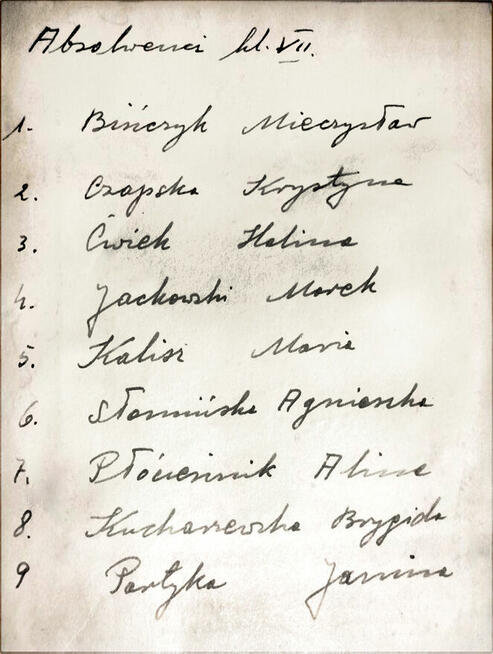 Absolwenci kl. VII.
1. Bińczyk Mieczysław
2. Czapska Krystyna
3. Ćwiek Halina
4. Jackowski Marek
5. Kalisz Maria
6. Słomińska Agnieszka
7. Płóciennik Alina
8. Kucharzewska Brygida
9 Partyka Janina